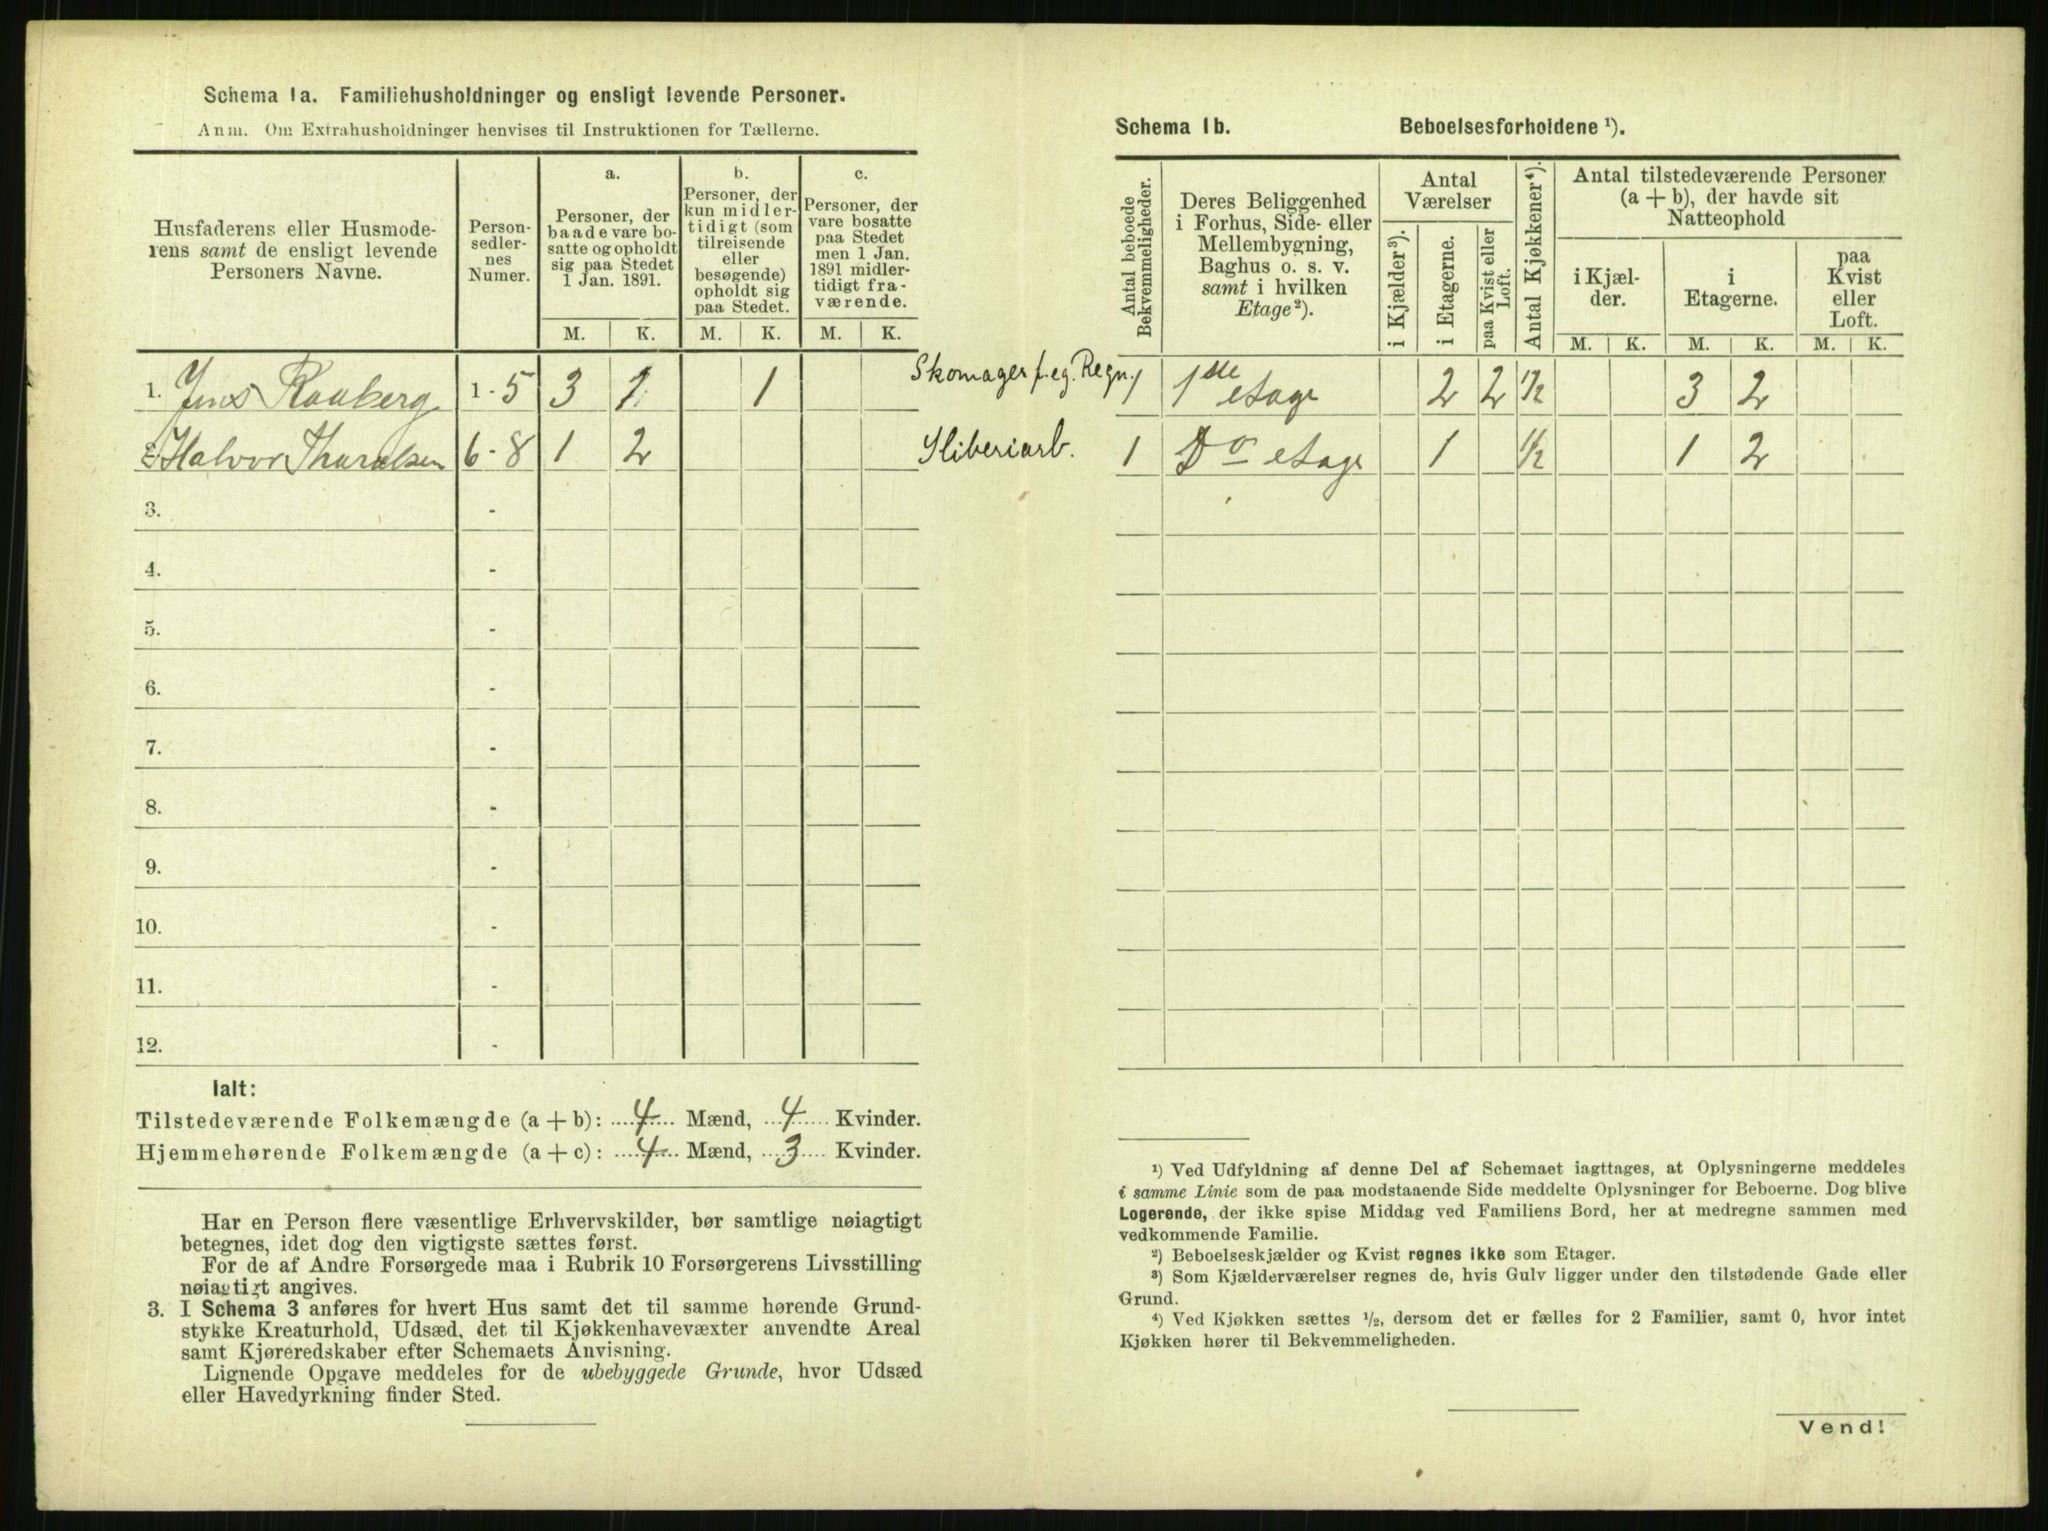 Schema 1a. Familiehusholdninger og ensligt levende Personer.
Anm. Om Extrahusholdninger henvises til Instruktionen for Tællerne.
Husfaderens eller Husmoderens samt de ensligt levende Personers Navne.
Personsedlernes Numer.
a. Personer, der baade vare bosatte og opholdt sig paa Stedet 1 Jan. 1891.
b. Personer, der kun midlertidigt (som tilreisende eller besøgende) opholdt sig paa Stedet.
c. Personer, der vare bosatte paa Stedet men 1 Jan. 1891 midlertidigt fraværende.
M. K. M. K. M. K.
1. Jens Raaberg 1-5 3 1 1 Skomager f. eg. Regn.
2. Halvor Thoralsen 6-8 1 2 Sliberiarb.
3. -
4. -
5. -
6. -
7. -
8. -
9. -
10. -
11. -
12. -
Ialt:
Tilstedeværende Folkemængde (a + b): 4 Mænd, 4 Kvinder.
Hjemmehørende Folkemængde (a + c): 4 Mænd, 3 Kvinder.
Har en Person flere væsentlige Erhvervskilder, bør samtlige nøiagtigt
betegnes, idet dog den vigtigste sættes først.
For de af Andre Forsørgede maa i Rubrik 10 Forsørgerens Livsstilling
nøiagtigt angives.
3. I Schema 3 anføres for hvert Hus samt det til samme hørende Grund-
stykke Kreaturhold, Udsæd, det til Kjøkkenhavevæxter anvendte Areal
samt Kjøreredskaber efter Schemaets Anvisning.
Lignende Opgave meddeles for de ubebyggede Grunde, hvor Udsæd
eller Havedyrkning finder Sted.
Schema 1b. Beboelsesforholdene ¹).
Antal beboede Bekvemmeligheder.
Deres Beliggenhed i Forhus, Side- eller Mellembygning, Baghus o. s. v. samt i hvilken Etage²).
Antal Værelser
i Kjælder³).
i Etagerne.
paa Kvist eller Loft.
Antal Kjøkkener⁴).
Antal tilstedeværende Personer (a + b), der havde sit Natteophold
i Kjælder.
i Etagerne.
paa Kvist eller Loft.
M. K. M. K. M. K.
1 1ste etage 2 2 1/2 3 2
1 Do etage 1 1/2 1 2
¹) Ved Udfyldning af denne Del af Schemaet iagttages, at Oplysningerne meddeles
i samme Linie som de paa modstaaende Side meddelte Oplysninger for Beboerne. Dog blive
Logerende, der ikke spise Middag ved Familiens Bord, her at medregne sammen med
vedkommende Familie.
²) Beboelseskjælder og Kvist regnes ikke som Etager.
³) Som Kjælderværelser regnes de, hvis Gulv ligger under den tilstødende Gade eller
Grund.
⁴) Ved Kjøkken sættes ½, dersom det er fælles for 2 Familier, samt 0, hvor intet
Kjøkken hører til Bekvemmeligheden.
Vend!